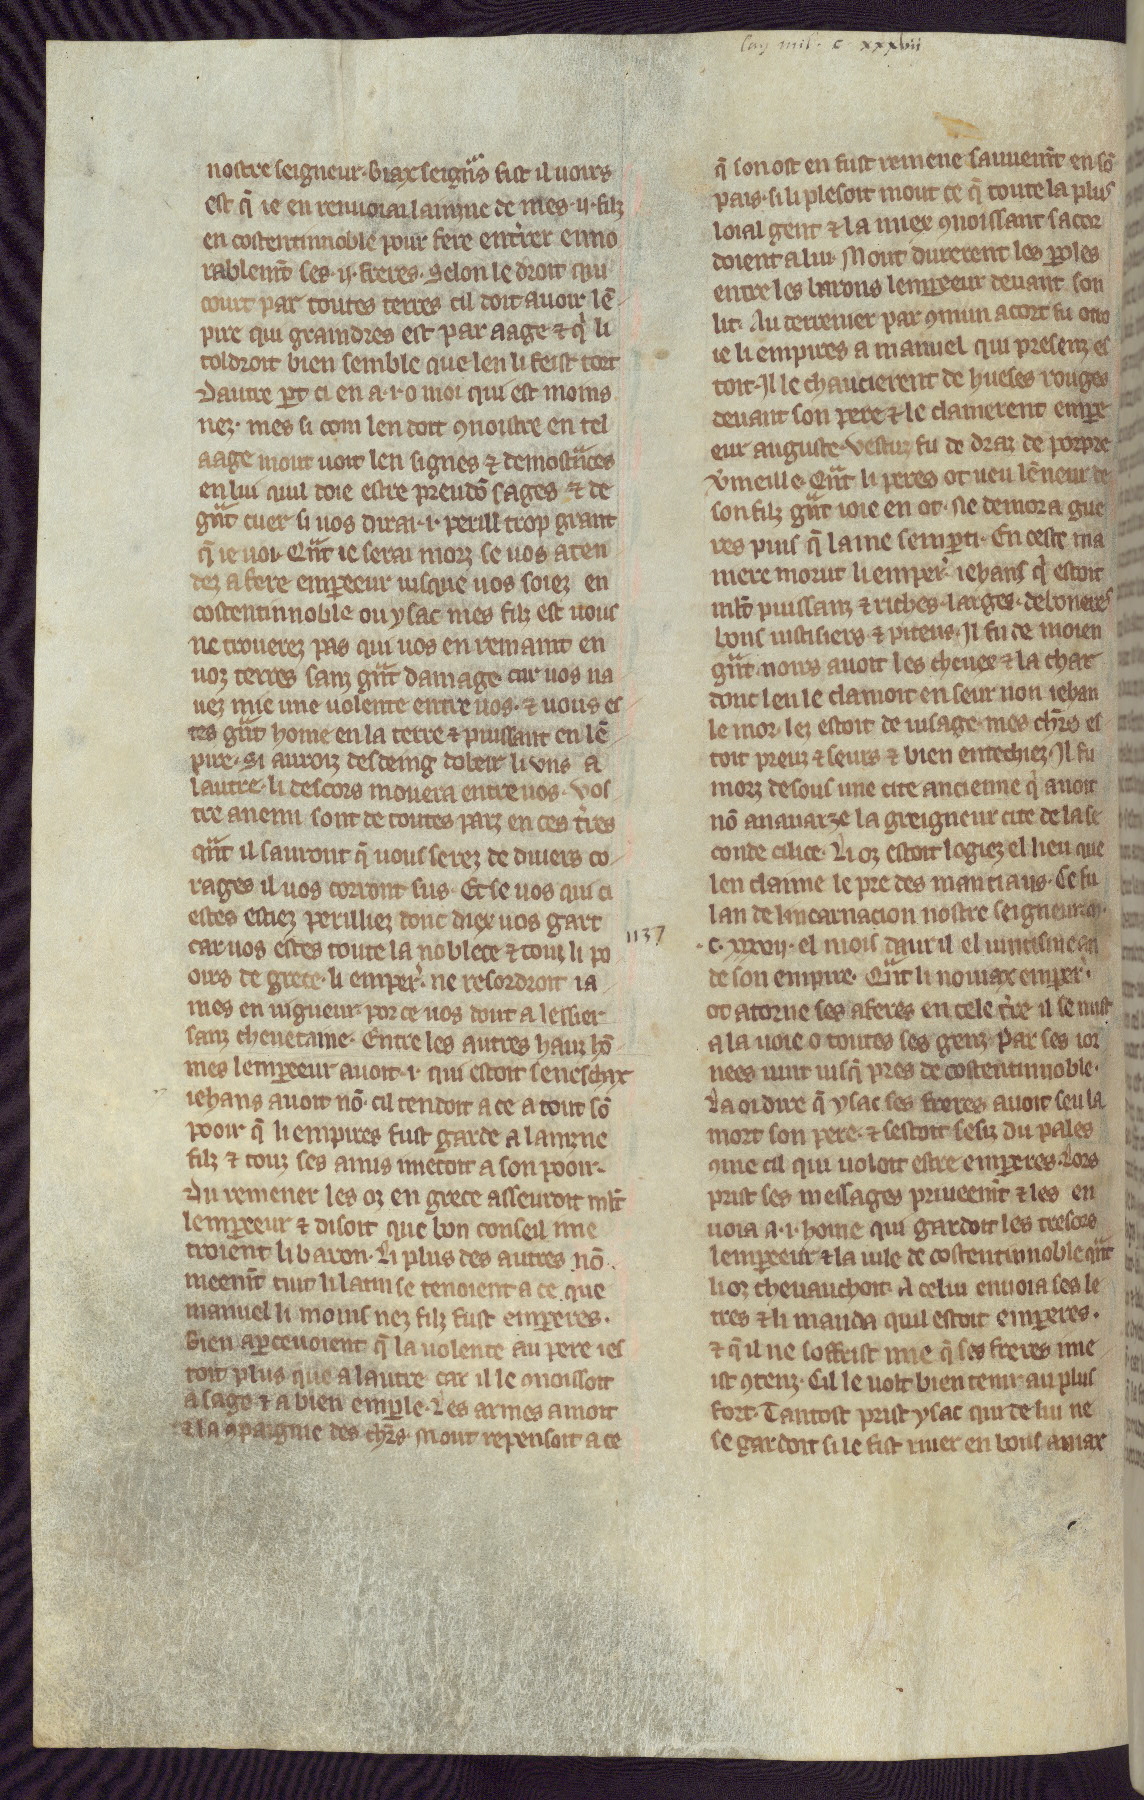 lan mil. c xxxvii
nostre seigneur. Biax seign̾s fist il uoirs
est q̃ ie en renuoiai lainzne de mes .ij. filz
en costentinnoble pour fere enterrer enno
rablem̃t ses .ij. freres. Selon le droit qui
court par toutes terres cil doit auoir lẽ
pire qui graindres est par aage ⁊ qͥ li
toldroit bien semble que len li feist tort
Dautre p̱t ci en a .i. o moi qui est moins
nez. mes si com len doit ꝯnoistre en tel
aage mout uoit len signes ⁊ demostᷓces
en lui quil doie estre preudõ sages ⁊ de
gᷓt cuer si uos dirai .i. perill trop grant
q̃ ie uoi. Qᷓt ie serai morz se uos aten
dez a fere emp̱eeur iusque uos soiez en
costentinnoble ou ysac mes filz est uous
ne trouerez pas qui uos en remaint en
uoz terres sanz gᷓt damage. car uos na
uez mie une uolente entre uos. ⁊ uous es
tes gᷓt home en la terre ⁊ puissant en lẽ
pire. Si auroiz desdeing dobeir li uns a
lautre. li descors mouera entre uos. Vos
tre anemi sont de toutes parz en ces t̾res
qᷓt il sauront q̃ uous serez de diuers co
rages il uos corront sus. Et se uos qui ci
estes estiez perilliez donc diex uos gart
car uos estes toute la noblece ⁊ touz li po
oirs de grece. li emper̾. ne resordroit ia
mes en uigueur. por ce uos dout a lessier
sanz cheuetaine. Entre les autres hauz hõ
mes lemp̱eeur auoit .i. qui estoit seneschax
iehans auoit nõ. cil tendoit a ce a tout sõ
pooir q̃ li empires fust garde a lainzne
filz ⁊ touz ses amis metoit a son pooir.
Du remener les oz en grece asseuroit ml̃t
lemp̱eeur ⁊ disoit que bon conseil me
troient li baron. Li plus des autres nõ
meem̃t tuit li latin se tenoient a ce que
manuel li moins nez filz fust emp̱eres.
Bien ap̱ceuoient q̃ la uolente au pere ies
toit plus que a lautre. car il le ꝯnoissoit
a sage ⁊ a bien emp̱le. Les armes amoit
⁊ la ꝯpaignie des chr̃s. Mout repensoit a ce
1137
q̃ son ost en fust remene sauuem̃t en sõ
pais. si li plesoit mout ce q̃ toute la plus
loial gent ⁊ la miex ꝯnoissant sacor
doient a lui. Mout durerent les p̱oles
entre les barons lemp̱eeur deuant son
lit. Au derrenier par ꝯmun acort fu otro
ie li empires a manuel qui presenz es
toit. Il le chaucierent de hueses rouges
deuant son pere ⁊ le clamerent emp̱e
eur auguste. Vestuz fu de draz de porpre
v̾meille. Qᷓt li peres ot ueu lẽneur de
son filz gᷓt ioie en ot. Ne demora gue
res puis q̃ lame semp̱ti. En ceste ma
niere morut li emper̾. iehans qͥ estoit
ml̃t puissanz ⁊ riches. larges. deboneres
bons iustisiers ⁊ piteus. Il fu de moien
gᷓt noirs auoit les cheuex ⁊ la char
donc len le clamoit en seur non iehan
le mor. lez estoit de uisage. mes chr̃s es
toit preuz ⁊ seurs ⁊ bien entechiez. Il fu
morz desous une cite ancienne qͥ auoit
nõ anauarze la greigneur cite de la se
conde cilice. Li oz estoit logiez el lieu que
len claime le pre des mantiaus. Ce fu
lan de lincarnacion nostre seigneur .m.
.c. xxxvij. el mois dauril el uintisme an
de son empire. Qᷓt li nouiax emper̾.
ot atorne ses aferes en cele t̾re il se mist
a la uoie o toutes ses genz. Par ses ior
nees uint iusq̃ pres de costentinnoble.
La oi dire q̃ ysac ses freres auoit seu la
mort son pere. ⁊ sestoit sesiz du pales
ꝯme cil qui uoloit estre emp̱eres. Lors
prist ses messages priueem̃t ⁊ les en
uoia a .i. home qui gardoit les tresors
lemp̱eeur ⁊ la uile de costentinnoble qᷓt
li oz cheuauchoit. A celui enuoia ses le
tres ⁊ li manda quil estoit emp̱eres.
⁊ q̃ il ne soffrist mie q̃ ses freres me
ist ꝯtenz. Cil le uolt bien tenir au plus
fort. Tantost prist ysac qui de lui ne
se gardoit si le fist riuer en bons aniax